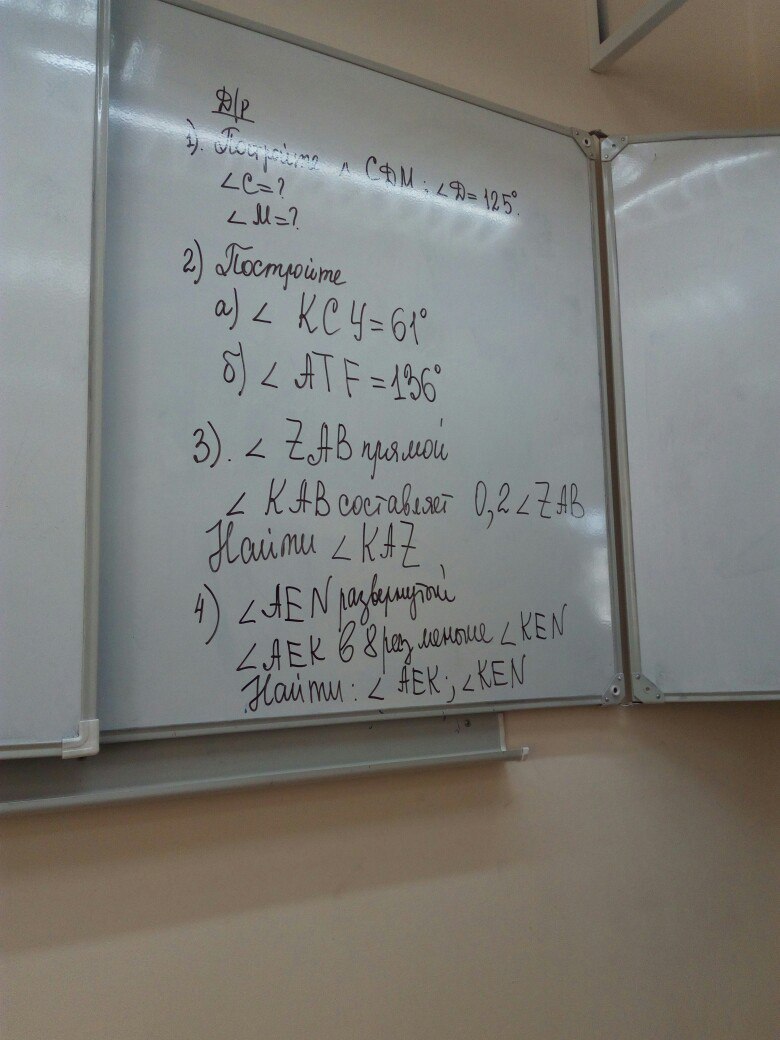 Д/р
1). Постройте △ СДМ; ∠Д=125°.
∠С=?
∠М=?
2) Постройте
а) ∠ КСУ=61°
б) ∠ ATF=136°
3). ∠ ZAB прямой
∠ KAB составляет 0,2∠ZAB
Найти ∠KAZ
4) ∠AEN развернутый
∠AEK в 8 раз меньше ∠KEN
Найти: ∠ AEK; ∠KEN